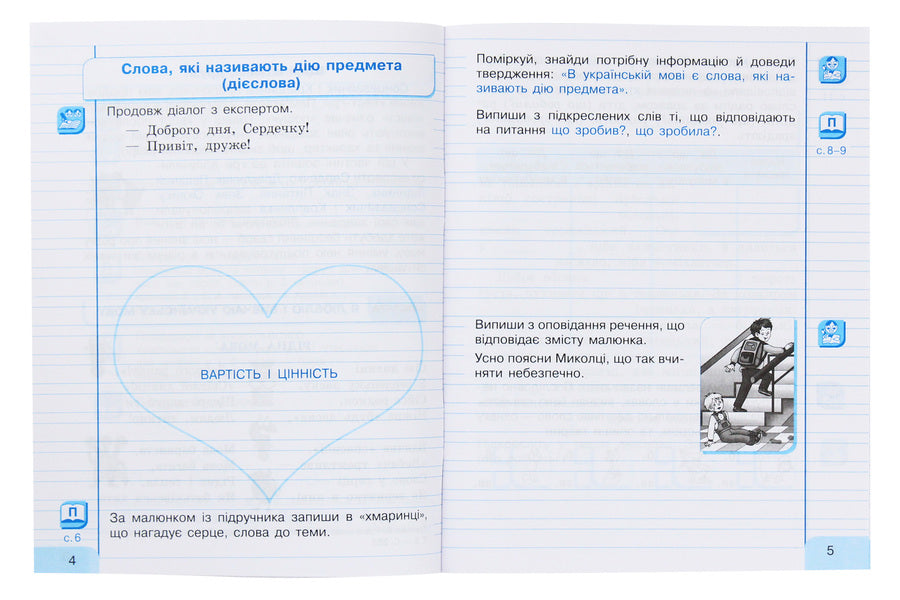 Слова, які називають дію предмета
(дієслова)
Продовж діалог з експертом.
— Доброго дня, Сердечку!
— Привіт, друже!
ВАРТІСТЬ І ЦІННІСТЬ
П
с. 6
За малюнком із підручника запиши в «хмаринці»,
що нагадує серце, слова до теми.
4
Поміркуй, знайди потрібну інформацію й доведи
твердження: «В українській мові є слова, які на-
зивають дію предмета».
Випиши з підкреслених слів ті, що відповідають
на питання що зробив?, що зробила?.
П
с. 8–9
Випиши з оповідання речення, що
відповідає змісту малюнка.
Усно поясни Миколці, що так вчи-
няти небезпечно.
5